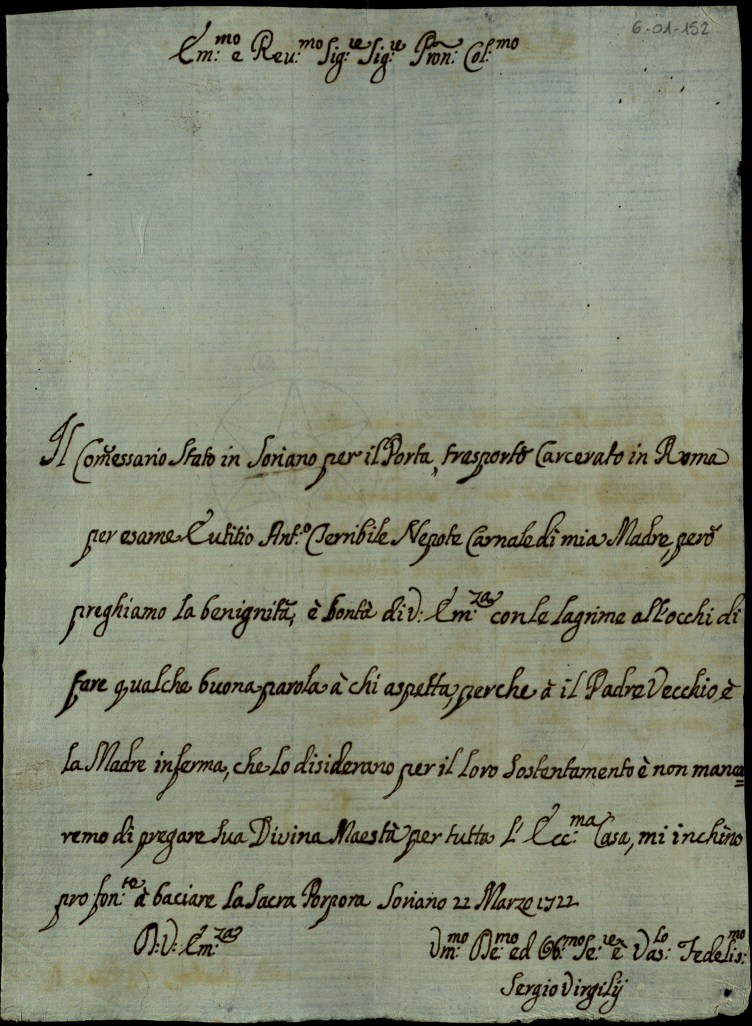 6-01-152
Em:mo e Reu:mo Sig:re Sig:re Pron: Col:mo
Il Com̃essario Stato in Soriano per il Porta, trasportò Carcerato in Roma
per esame Eutitio Ant:o Terribile Nepote Carnale di mia Madre, però
preghiamo la benignità, è bontà di V: Em:za con le lagrime all'occhi di
fare qualche buona parola à chi aspetta, perche à il Padre Vecchio, è
la Madre inferma, che lo disiderano per il loro Sostentamento è non manca=
remo di pregare Sua Divina Maestà per tutta l'Ecc:ma Casa, mi inchino
pro fon:te à baciare la Sacra Porpora Soriano 22 Marzo 1722
D: V: Em:za
Vm:mo De:mo ed Ob:mo Se:re è Vas:lo Fedelis:mo
Sergio Virgilij